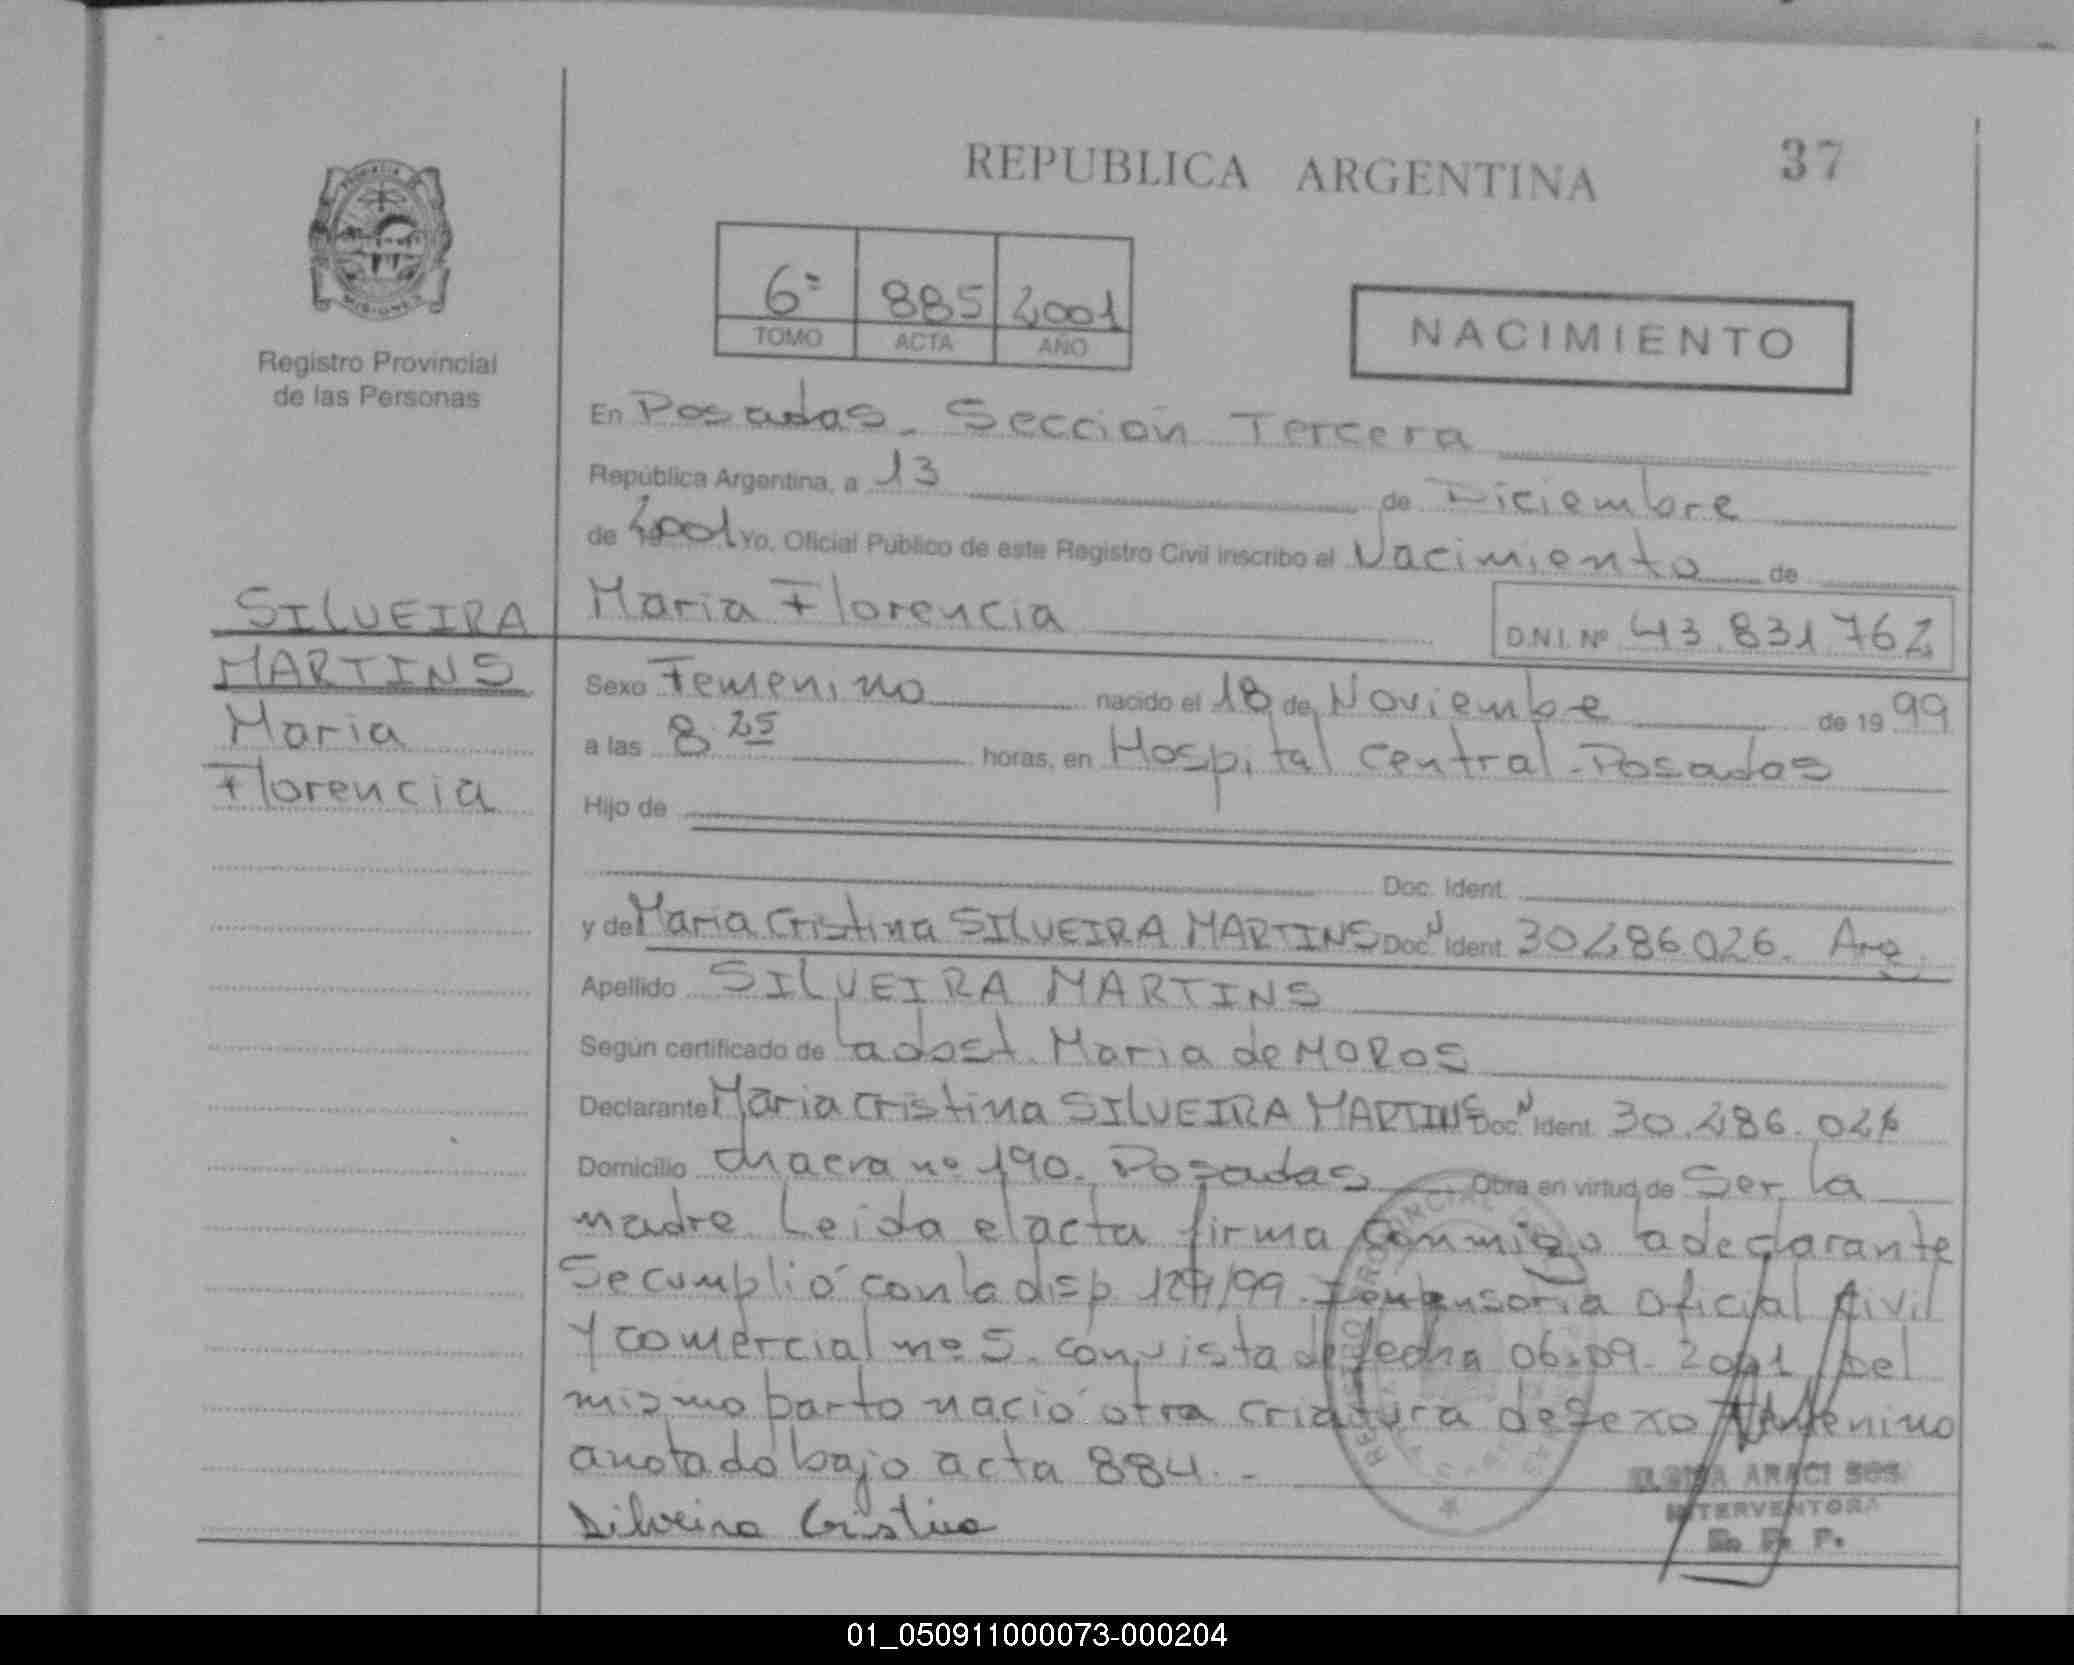 REPUBLICA ARGENTINA
37
6º 885 2001
TOMO ACTA AÑO
NACIMIENTO
Registro Provincial
de las Personas
En Posadas. Sección Tercera
República Argentina, a 13 de Diciembre
de 2001 Yo, Oficial Público de este Registro Civil inscribo el Nacimiento de
SILVEIRA
MARTINS
Maria
Florencia
Maria Florencia D.N.I. Nº 43.831.762
Sexo Femenino nacido el 18 de Noviembe de 1999
a las 8.25 horas, en Hospital Central-Posadas
Hijo de
Doc. Ident.
y de Maria Cristina SILVEIRA MARTINS Doc. Ident. 30.286.026. Arg
Apellido SILVEIRA MARTINS
Según certificado de la obst. Maria de MOROS
Declarante Maria Cristina SILVEIRA MARTINS Doc. Ident. 30.286.026
Domicilio chacra nº 190. Posadas Obra en virtud de Ser la
madre. Leida el acta firma conmigo la declarante
Se cumplió con la disp. /99. Oficial Civil
Y comercial nº 5. con vista de fecha 06.09.2001 Del
mismo parto nació otra criatura de sexo
anotado bajo acta 884.-
Silveira Cristina
ARACI
INTERVENTORA
R. P. P.
01_050911000073-000204